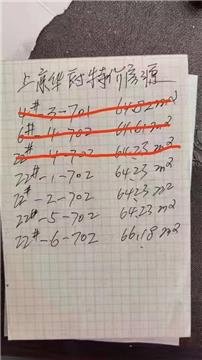 上京华府特价房源
4#-3-701 64.82m²
6#-4-702 64.61m²
22#-4-702 64.23m²
22#-1-702 64.23m²
22#-2-702 64.23m²
22#-5-702 64.23m²
22#-6-702 66.18m²